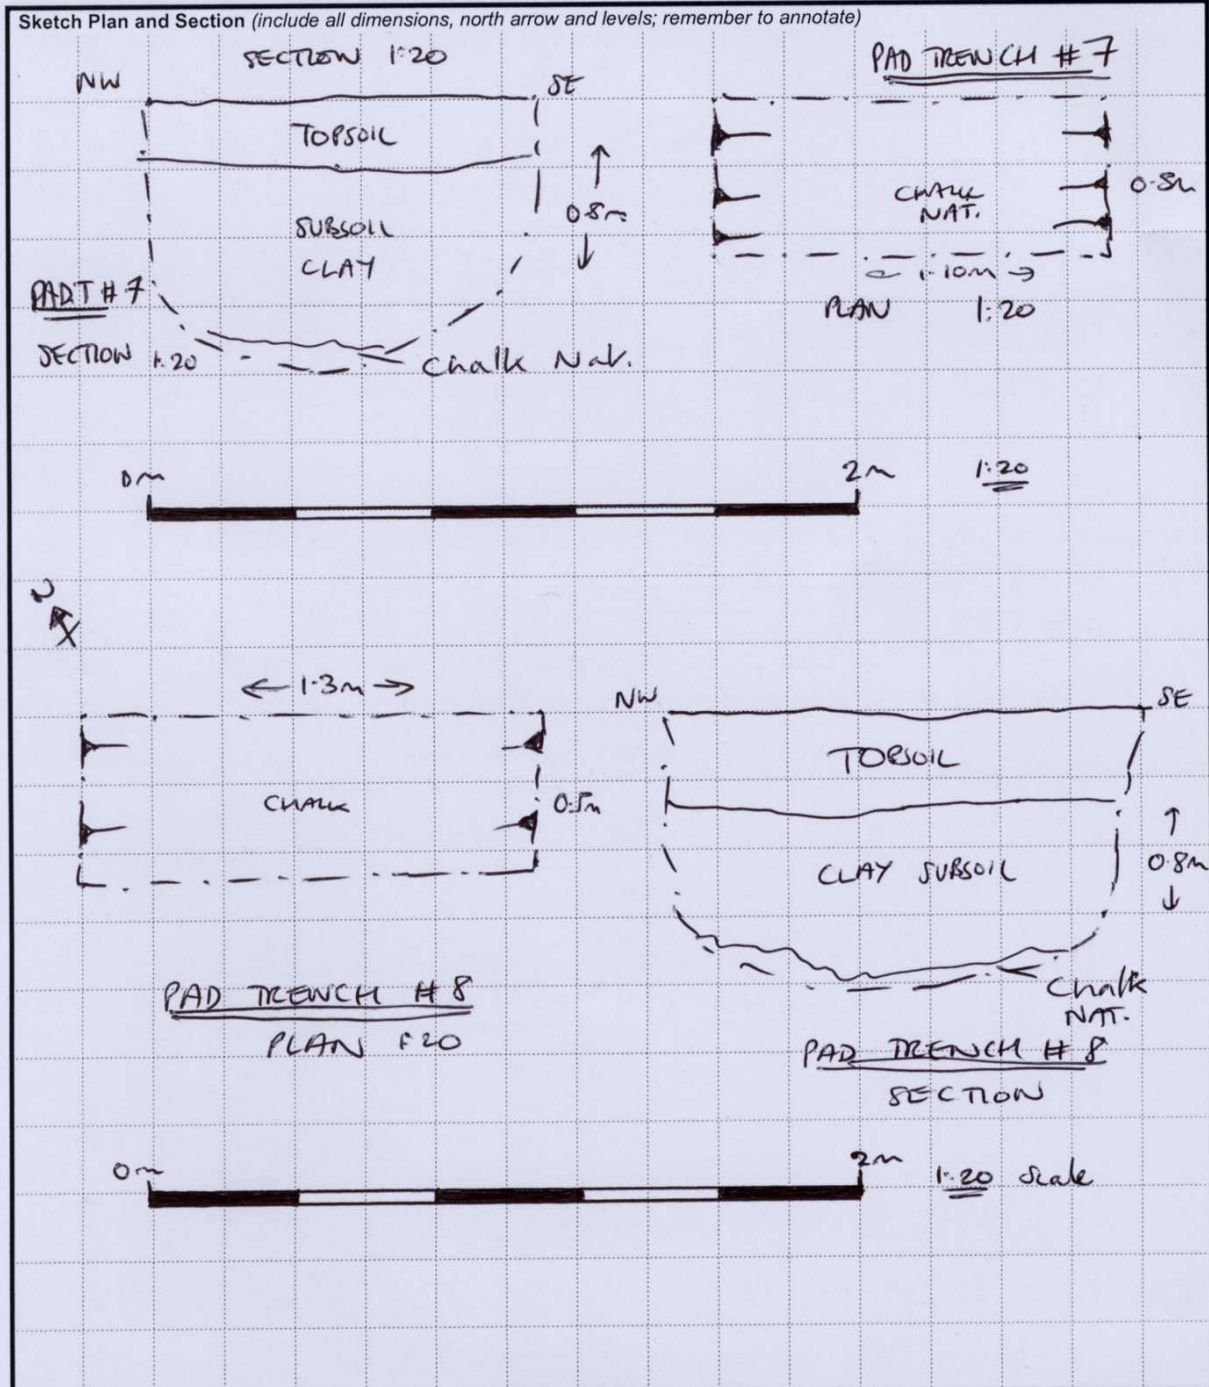 Sketch Plan and Section (include all dimensions, north arrow and levels; remember to annotate)
SECTION 1:20
NW
SE
TOPSOIL
SUBSOIL
CLAY
0.8m
PADT #7
SECTION 1:20
Chalk Nat.
PAD TRENCH #7
CHALK
NAT.
1.10m
PLAN 1:20
0m
2m
1:20
N
1.3m
CHALK
0.5m
PAD TRENCH #8
PLAN 1:20
NW
SE
TOPSOIL
CLAY SUBSOIL
0.8m
Chalk
NAT.
PAD TRENCH #8
SECTION
0m
2m
1:20 Scale